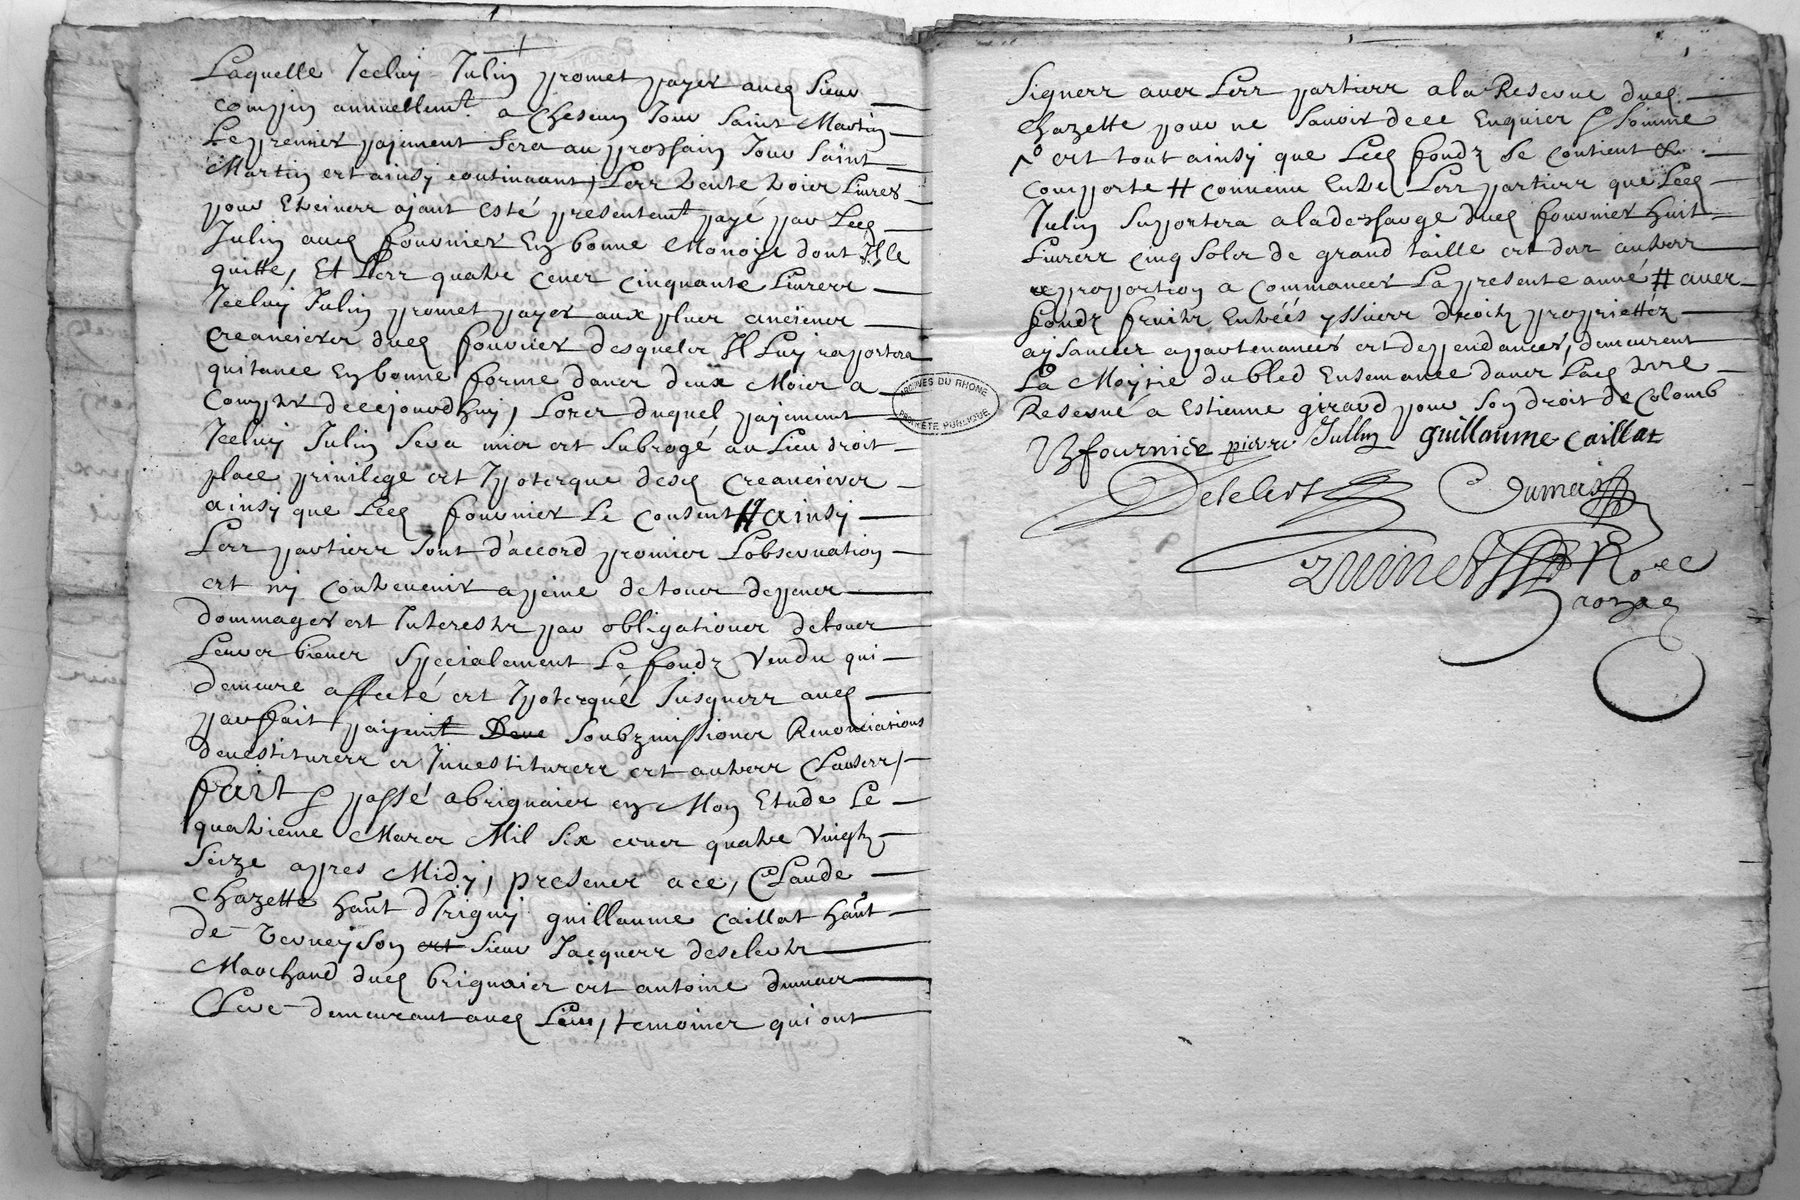 Laquelle Icelluy Julin promet payer aud Sieur
compin annuellemt a chescun Jour Saint Martin
Le premier payement sera au prochain Jour Saint
Martin et ainsy continuant, Les trente trois Livres
pour Etreines ayant esté presentemt payé par Led
Julin aud fournier En bonne Monoye dont Il le
quitte, Et Les quatre cens cinquante Livres
Icelluy Julin promet payer aux plus anciens
creanciers dud fournier desquels Il Luy raportera
quitance En bonne forme dans deux Mois a
Compter de cejourdhuy, Lors duquel payement
Icelluy Julin sera mis et subrogé au Lieu droit
place privilege et Ipoteque desd creanciers
ainsy que Led fournier Le consent # ainsy
Les parties sont d'accord promis Lobservation
et ny contrevenir a peine de tous depens
dommages et Interests par obligations de tous
Leurs biens specialement Le fondz vendu qui
demeure affecté et Ipotequé Jusques aud
parfait payemt soubzmissions Renonciations
devestitures et Investitures et autres Clauses/
fait & passé a brignais en Mon Etude Le
quatrieme Mars Mil six cens quatre vingtz
seize apres Midy, presens a ce, Claude
Chazette hant d'Irigny guillaume Caillat hant
de Verneyson sieur Jacques desclerts
Marchand dud brignais et antoine dumas
Clerc demeurant aud Lieu, temoins qui ont
Signes avec Les parties a la Reserve dud
Chazette pour ne savoir de ce Enquier & somme
et tout ainsy que Led fondz se contient &
comporte # convenu Entre Les parties que Led
Julin suportera a la descharge dud fournier huit
Livres cinq sols de grand taille et des autres
a proportion a commancer La presente anné # avec
fondz fruitz Entréés yssues droitz proprietéz
aysances appartenances et dependances, demeurent
La Moytie du bled Ensemance dans Lad terre
Reservé a Estienne giraud pour son droit de Colomb
fournier pierre Jullin guillaume caillat
Desclerts Dumas
ARCHIVES DU RHÔNE
PROPRIÉTÉ PUBLIQUE